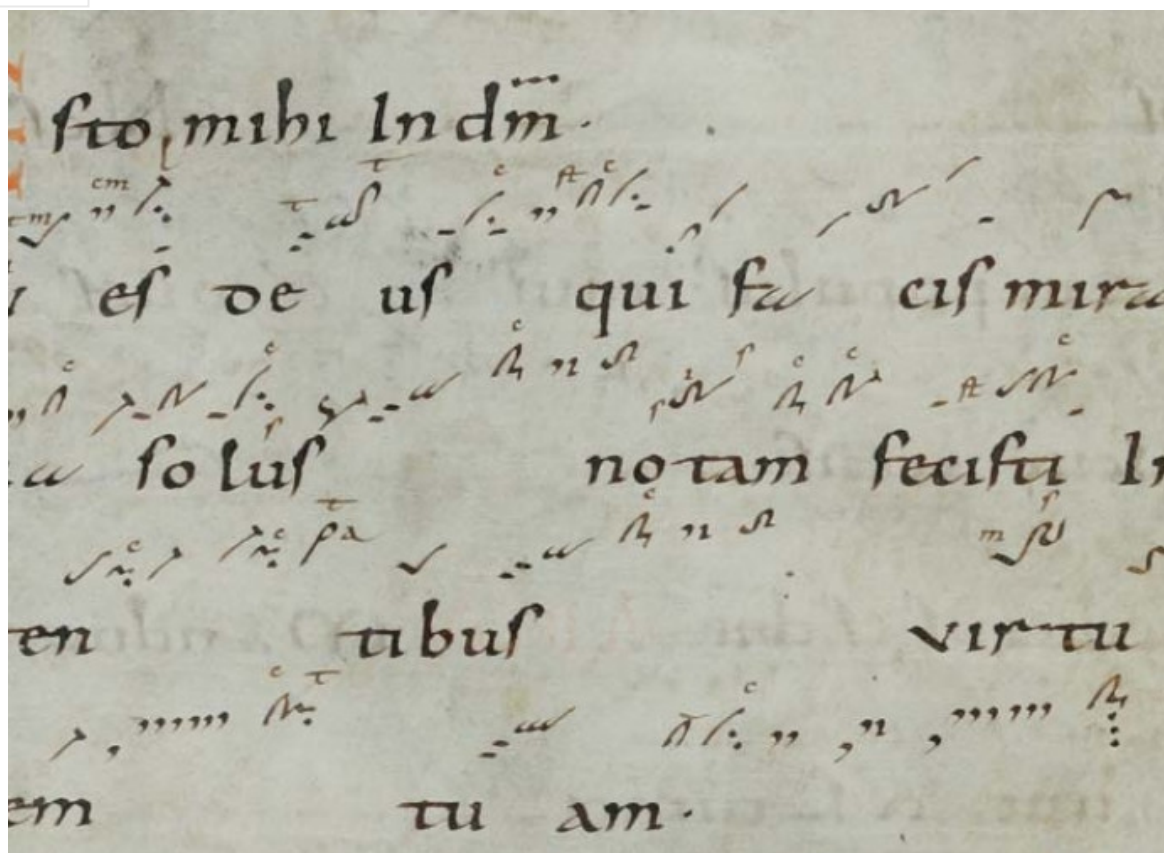 sto mihi In dm̅.
es de us qui fa cis mira
a so lus no tam fecisti In
en ti bus vir tu
em tu am.